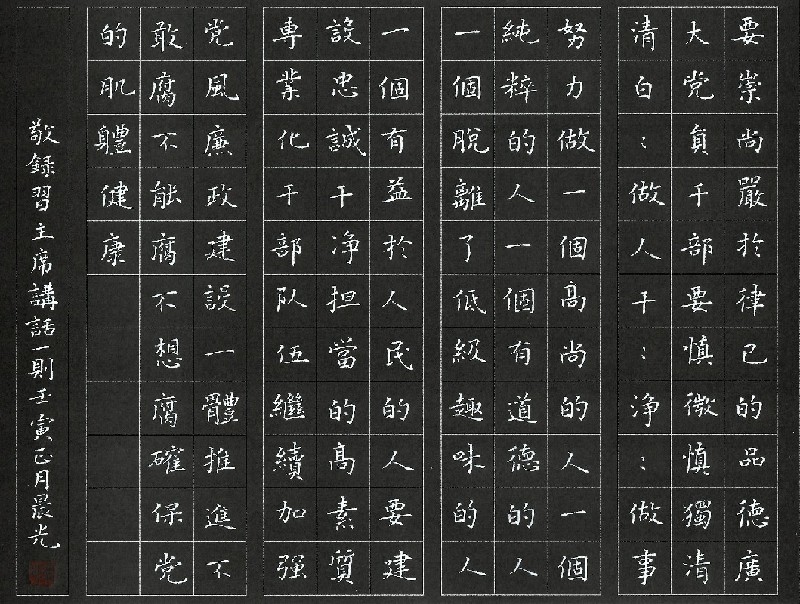 要崇尚嚴於律己的品德廣
大党員干部要慎微慎獨清
清白：做人干：净：做事
努力做一個高尚的人一個
純粹的人一個有道德的人
一個脫離了低級趣味的人
一個有益於人民的人要建
設忠誠干净担當的高素質
專業化干部队伍繼續加强
党風廉政建設一體推進不
敢腐不能腐不想腐確保党
的肌軆健康
敬録習主席講話一則壬寅正月晨光